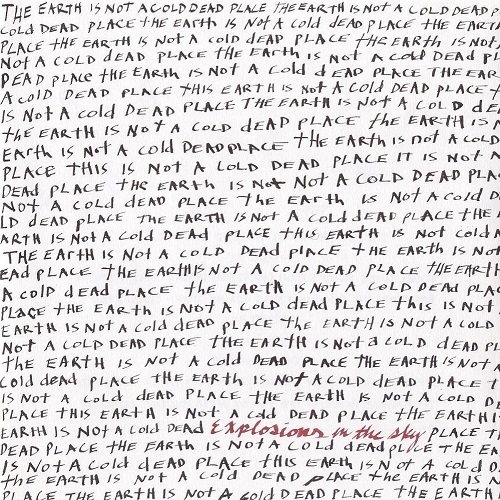 THE EARTH IS NOT A COLD DEAD PLACE THE EARTH IS NOT A COLD DEAD P
COLD DEAD PLACE THE EARTH IS NOT A COLD DEAD PLACE THE EARTH
PLACE THE EARTH IS NOT A COLD DEAD PLACE THE EARTH IS NOT
NOT A COLD DEAD PLACE THE EARTH IS NOT A COLD DEAD PL
DEAD PLACE THE EARTH IS NOT A COLD DEAD PLACE THE EAR
A COLD DEAD PLACE THIS EARTH IS NOT A COLD DEAD PLACE
IS NOT A COLD DEAD PLACE THE EARTH IS NOT A COLD DE
THE EARTH IS NOT A COLD DEAD PLACE THE EARTH IS N
EARTH IS NOT A COLD DEAD PLACE THE EARTH IS NOT A COLD
PLACE THIS IS NOT A COLD DEAD PLACE IT IS NOT A
DEAD PLACE THE EARTH IS NOT NOT A COLD DEAD PLA
NOT A COLD DEAD PLACE THE EARTH IS NOT A COLD D
LD DEAD PLACE THE EARTH IS NOT A COLD DEAD PLACE THE
ARTH IS NOT A COLD DEAD PLACE THIS EARTH IS NOT COLD A
THE EARTH IS NOT A COLD DEAD PLACE THE EARTH IS NOT
EAD PLACE THE EARTH IS NOT A COLD DEAD PLACE THE EARTH
A COLD DEAD PLACE THE EARTH IS NOT A COLD DEAD PLAC
PLACE THE EARTH IS NOT A COLD DEAD PLACE THIS IS NOT
EARTH IS NOT A COLD DEAD PLACE THE EARTH IS NOT A COLD
NOT A COLD DEAD PLACE THE EARTH IS NOT A COLD DEAD PL
THE EARTH IS NOT A COLD DEAD PLACE THE EARTH IS NOT A
COLD DEAD PLACE THE EARTH IS NOT A COLD DEAD PLACE T
IS NOT A COLD DEAD PLACE THE EARTH IS NOT A COLD D
PLACE THIS EARTH IS NOT A COLD DEAD PLACE THE EARTH I
EARTH IS NOT A COLD DEAD Explosions in the sky PLACE T
DEAD PLACE THE EARTH IS NOT A COLD DEAD PLACE THE EA
IS NOT A COLD DEAD PLACE THIS EARTH IS NOT A COLD D
THE EARTH IS NOT A COLD DEAD PLACE THE EARTH IS NOT
PLACE THE EARTH IS NOT A COLD DEAD PLACE THE EARTH